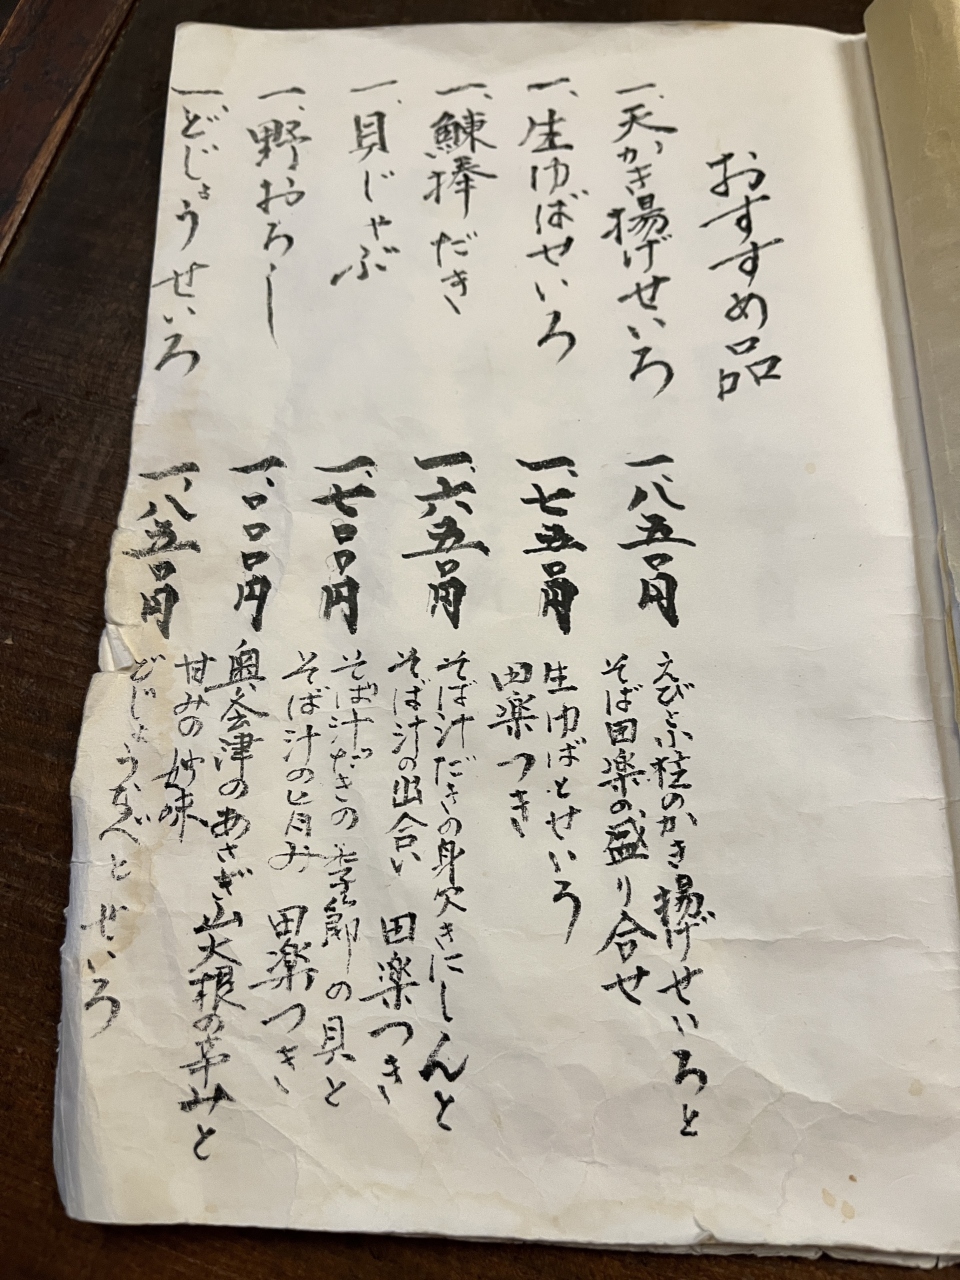 おすすめ品
一、天かき揚げせいろ
一、八五〇円
えびと小柱のかき揚げせいろと
そば田楽の盛り合せ
一、生ゆばせいろ
一、七五〇円
生ゆばとせいろ
田楽つき
一、鰊棒だき
一、六五〇円
そば汁だきの身欠きにしんと
そば汁の出合い 田楽つき
一、貝じゃぶ
一、七〇〇円
そば汁だきの季節の貝と
そば汁の旨み 田楽つき
一、野おろし
一、〇〇〇円
奥会津のあざき大根の辛みと
甘みの妙味
一、どじょうせいろ
一、八五〇円
どじょうなべとせいろ